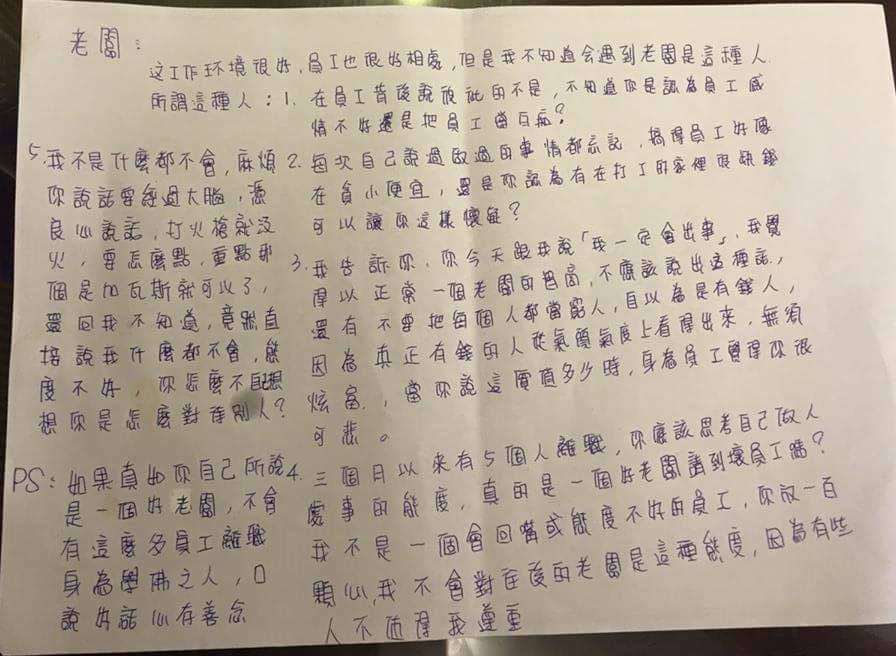 老闆：
这工作环境很好，員工也很好相處，但是我不知道会遇到老闆是這種人
所謂這種人：1. 在員工背後說彼此的不是，不知道你是認為員工感
情不好還是把員工當白痴？
2. 每次自己說過做過的事情都忘記，搞得員工好像
在貪小便宜，還是你認為有在打工的家裡很缺錢
可以讓你這樣懷疑？
3. 我告訴你，你今天跟我說「我一定會出事」，我覺
得以正常一個老闆的智商，不應該說出這種話，
還有不要把每個人都當窮人，自以為是有錢人，
因為真正有錢的人從氣質氣度上看得出來，無須
炫富，當你說這價值多少時，身為員工覺得你很
可悲。
4. 三個月以來有5個人離職，你應該思考自己做人
處事的態度，真的是一個好老闆請到壞員工嗎？
我不是一個會回嘴或態度不好的員工，你放一百
顆心，我不會對往後的老闆是這種態度，因為有些
人不值得我遵重
5. 我不是什麼都不會，麻煩
你說話要經過大腦，憑
良心說話，打火槍就沒
火，要怎麼點，重點那
個是加瓦斯就可以了，
還回我不知道，竟然直
接說我什麼都不會，態
度不好，你怎麼不自己想
想你是怎麼對待別人？
PS：如果真如你自己所說
是一個好老闆，不會
有這麼多員工離職
身為學佛之人，口
說好話心有善念